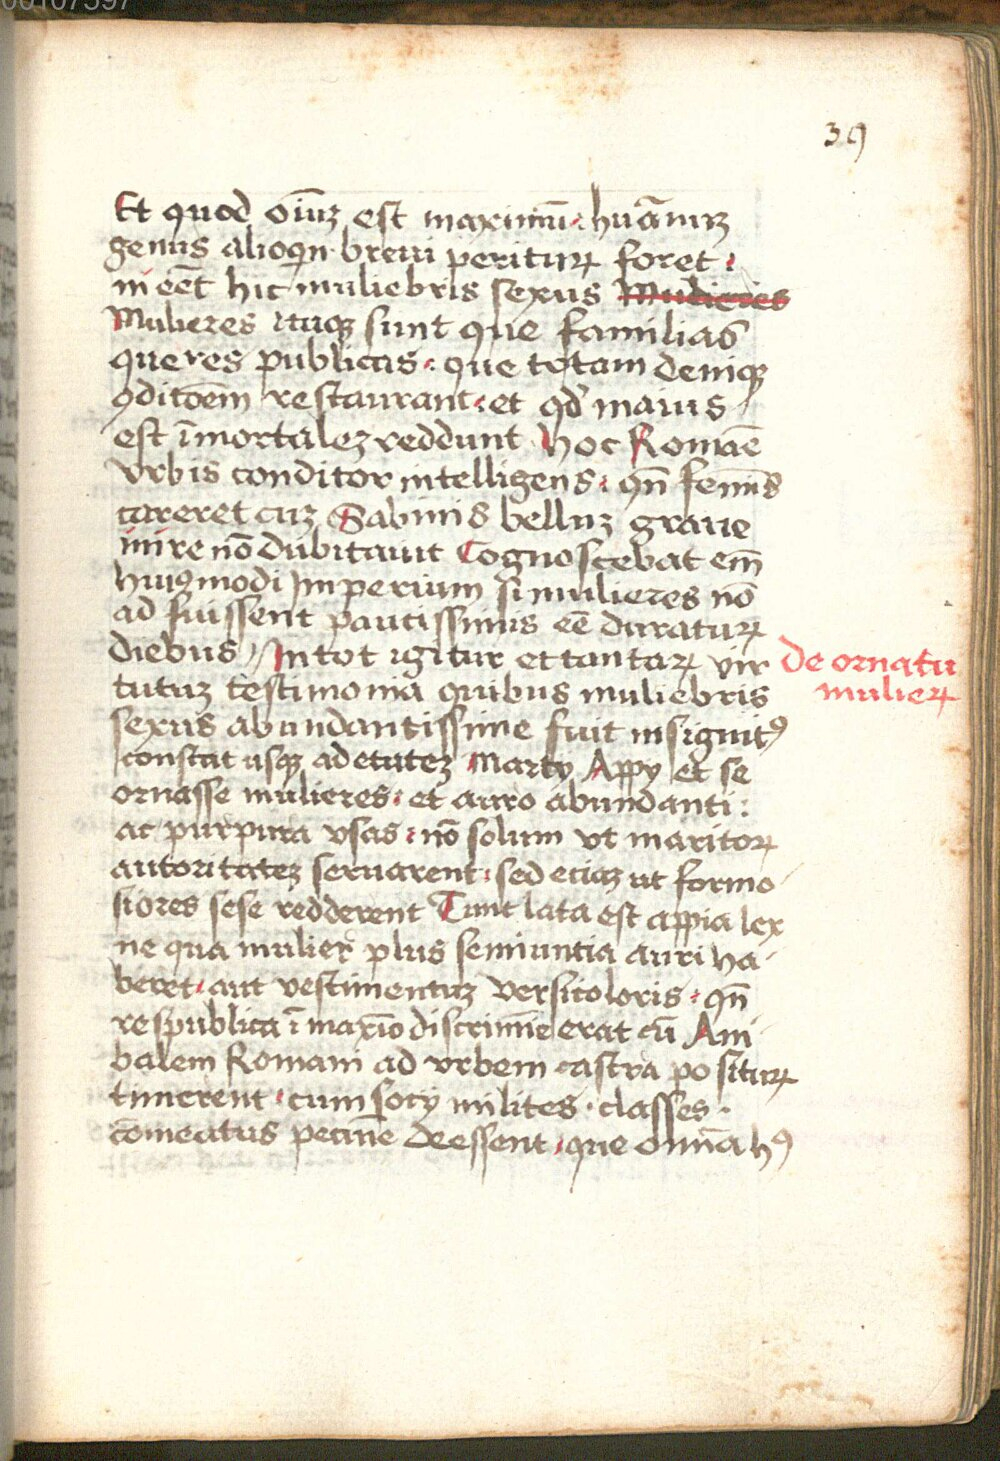 00107597
39
Et quod oīuꝫ est maximū · huāanuꝫ
genus alioqn̄ breui perituꝝ foret ·
ni eēt hic muliebris sexus Mulieres
Mulieres itaqꝫ sunt que familias
que res publicas · que totam deniqꝫ
ꝯditōem restaurant · et qd̛ maius
est īmortalez reddunt Hoc Romāe
vrbis conditor intelligens · qn̄ femīs
careret cuꝫ Sabinis belluꝫ graue
inire nō dubitauit Cognoscebat em̄
huiꝰmodi Imperium si mulieres nō
ad fuissent paucissimis eē duratuꝝ
diebus // In tot igitur et tantaꝝ vir
de ornatu
mulieꝝ
tutuꝫ testimonia quibus muliebris
sexus abundantissime fuit insignitꝰ
constat usqꝫ ad etatez Marcÿ Appÿ et se
ornasse mulieres · et auro abundanti :
ac purpura vsas · nō solum vt maritoꝝ
autoritatez seruarent · sed eciaꝫ ut formo
siores sese redderent Tunc lata est appia lex
ne qua mulier plus semiuntia auri ha-
beret · aut vestimentuꝫ versicoloris · qn̄
respublica ī maxīo discrimīe erat cū Ani
balem Romani ad vrbem castra posituꝝ
timerent · cum socÿ milites · classes ·
cōmeatus pecunīe deessent · que omnīa hꝰ